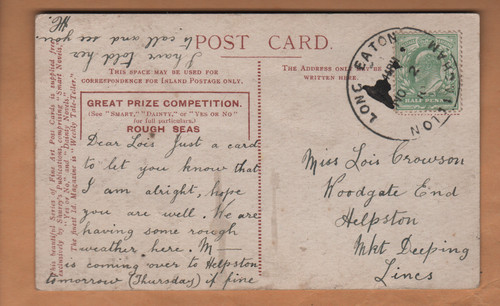 POST CARD.
THIS SPACE MAY BE USED FOR
CORRESPONDENCE FOR INLAND POSTAGE ONLY.
THE ADDRESS ONLY
WRITTEN HERE.
GREAT PRIZE COMPETITION.
(See "SMART," "DAINTY," or "YES OR NO"
for full particulars.)
ROUGH SEAS
Dear Lois Just a card
to let you know that
I am alright, hope
you are well. We are
having some rough
weather here. M—
is coming over to Helpston
tomorrow (Thursday) if fine
I have told her
to call and see you.
Miss Lois Crowson
Woodgate End
Helpston
Mkt Deeping
Lincs
LONG EATON
NOTTINGHAM
HALF PENNY
This beautiful Series of Fine Art Post Cards is supplied free
exclusively by Shurey's Publications, comprising "Smart Novels,"
"Yes or No," and "Dainty Novels."
The finest 1d. Magazine is "Weekly Tale-Teller."